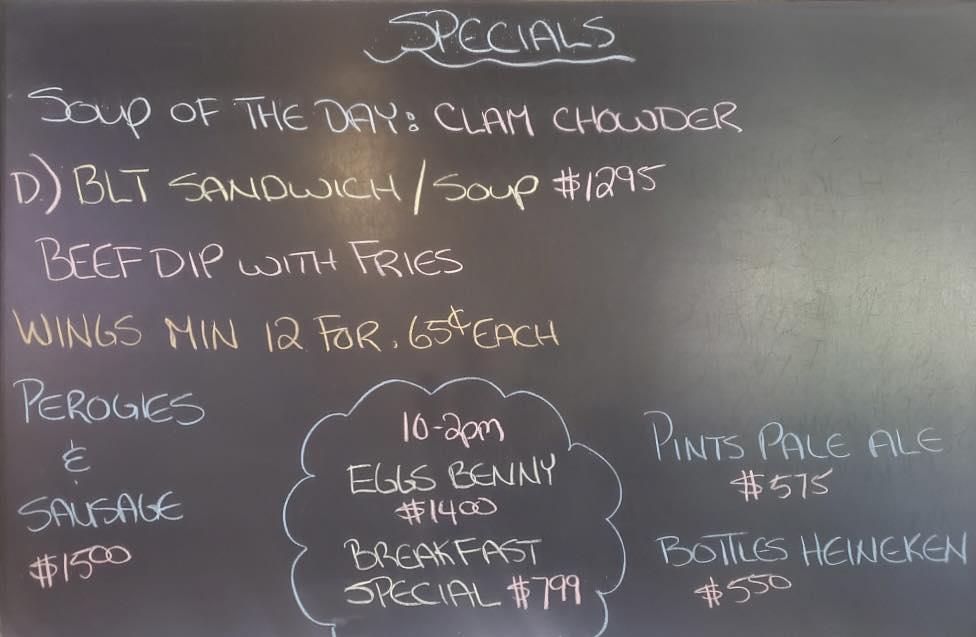 SPECIALS
SOUP OF THE DAY: CLAM CHOWDER
D.) BLT SANDWICH / SOUP $1295
BEEF DIP WITH FRIES
WINGS MIN 12 FOR .65¢ EACH
PEROGIES
&
SAUSAGE
$1500
10-2pm
EGGS BENNY
$1400
BREAKFAST
SPECIAL $799
PINTS PALE ALE
$575
BOTTLES HEINEKEN
$550